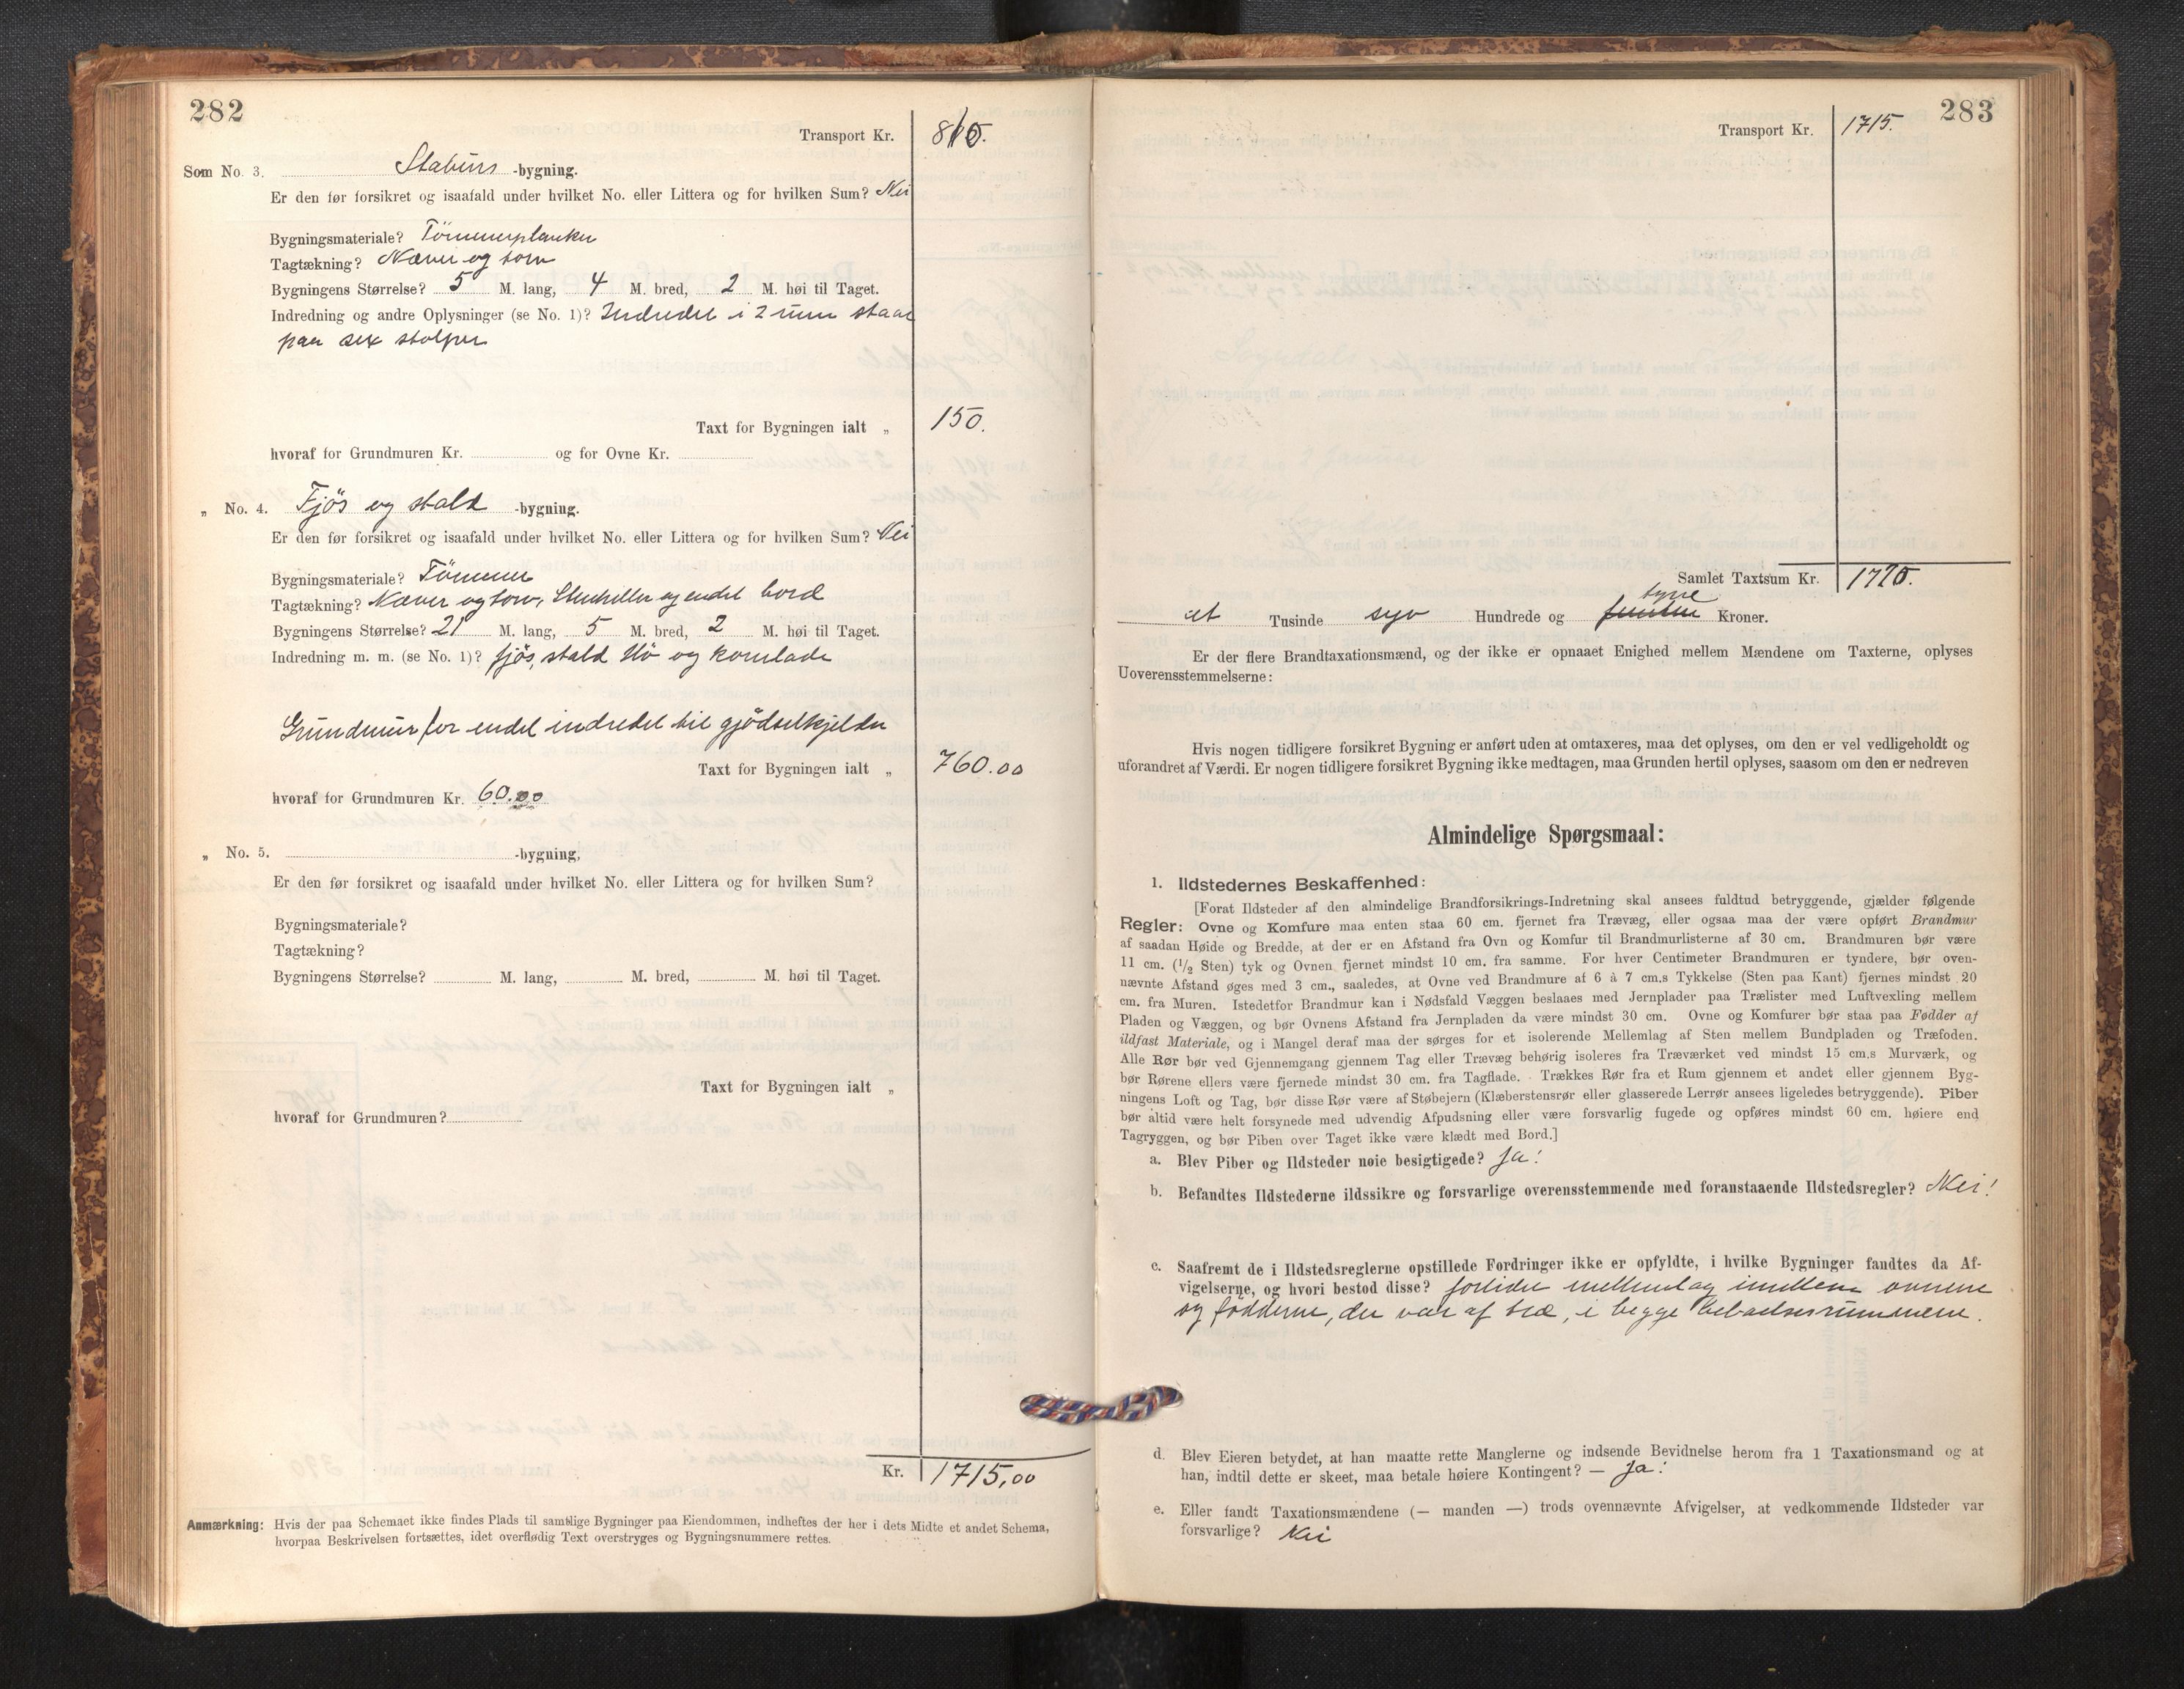 282
Transport Kr. 810.
Som No. 3. Staburs -bygning.
Er den før forsikret og isaafald under hvilket No. eller Littera og for hvilken Sum? Nei
Bygningsmateriale? Tömmerplanker
Tagtækning? Næver og torv
Bygningens Størrelse? 5 M. lang, 4 M. bred, 2 M. høi til Taget.
Indredning og andre Oplysninger (se No. 1)? Indredet i 2 rum staar
paa sex stolper
Taxt for Bygningen ialt „ 150.
hvoraf for Grundmuren Kr. og for Ovne Kr.
„ No. 4. Fjös og stald -bygning.
Er den før forsikret og isaafald under hvilket No. eller Littera og for hvilken Sum? Nei
Bygningsmateriale? Tömmer
Tagtækning? Næver og torv, Stenheller og endel bord
Bygningens Størrelse? 21 M. lang, 5 M. bred, 2 M. høi til Taget.
Indredning m. m. (se No. 1)? fjös, stald Hö og kornlade
Grundmur for endel indredet til gjödselkjelder
Taxt for Bygningen ialt „ 760.00
hvoraf for Grundmuren Kr. 60.00
„ No. 5. -bygning,
Er den før forsikret og isaafald under hvilket No. eller Littera og for hvilken Sum?
Bygningsmateriale?
Tagtækning?
Bygningens Størrelse? M. lang, M. bred, M. høi til Taget.
Taxt for Bygningen ialt „
hvoraf for Grundmuren?
Kr. 1715,00
Anmærkning: Hvis der paa Schemaet ikke findes Plads til samtlige Bygninger paa Eiendommen, indheftes der her i dets Midte et andet Schema,
hvorpaa Beskrivelsen fortsættes, idet overflødig Text overstryges og Bygningsnummere rettes.
283
Transport Kr. 1715.
Samlet Taxtsum Kr. 1720.
tyve
et Tusinde syv Hundrede og femten Kroner.
Er der flere Brandtaxationsmænd, og der ikke er opnaaet Enighed mellem Mændene om Taxterne, oplyses
Uoverensstemmelserne:
Hvis nogen tidligere forsikret Bygning er anført uden at omtaxeres, maa det oplyses, om den er vel vedligeholdt og
uforandret af Værdi. Er nogen tidligere forsikret Bygning ikke medtagen, maa Grunden hertil oplyses, saasom om den er nedreven
Almindelige Spørgsmaal:
1. Ildstedernes Beskaffenhed:
[Forat Ildsteder af den almindelige Brandforsikrings-Indretning skal ansees fuldtud betryggende, gjælder følgende
Regler: Ovne og Komfure maa enten staa 60 cm. fjernet fra Trævæg, eller ogsaa maa der være opført Brandmur
af saadan Høide og Bredde, at der er en Afstand fra Ovn og Komfur til Brandmurlisterne af 30 cm. Brandmuren bør være
11 cm. (1/2 Sten) tyk og Ovnen fjernet mindst 10 cm. fra samme. For hver Centimeter Brandmuren er tyndere, bør oven-
nævnte Afstand øges med 3 cm., saaledes, at Ovne ved Brandmure af 6 à 7 cm.s Tykkelse (Sten paa Kant) fjernes mindst 20
cm. fra Muren. Istedetfor Brandmur kan i Nødsfald Væggen beslaaes med Jernplader paa Trælister med Luftvexling mellem
Pladen og Væggen, og bør Ovnens Afstand fra Jernpladen da være mindst 30 cm. Ovne og Komfurer bør staa paa Fødder af
ildfast Materiale, og i Mangel deraf maa der sørges for et isolerende Mellemlag af Sten mellem Bundpladen og Træfoden.
Alle Rør bør ved Gjennemgang gjennem Tag eller Trævæg behørig isoleres fra Træværket ved mindst 15 cm.s Murværk, og
bør Rørene ellers være fjernede mindst 30 cm. fra Tagflade. Trækkes Rør fra et Rum gjennem et andet eller gjennem Byg-
ningens Loft og Tag, bør disse Rør være af Støbejern (Klæberstensrør eller glasserede Lerrør ansees ligeledes betryggende). Piber
bør altid være helt forsynede med udvendig Afpudsning eller være forsvarlig fugede og opføres mindst 60 cm. høiere end
Tagryggen, og bør Piben over Taget ikke være klædt med Bord.]
a. Blev Piber og Ildsteder nøie besigtigede? Ja!
b. Befandtes Ildstederne ildssikre og forsvarlige overensstemmende med foranstaaende Ildstedsregler? Nei!
c. Saafremt de i Ildstedsreglerne opstillede Fordringer ikke er opfyldte, i hvilke Bygninger fandtes da Af-
vigelserne, og hvori bestod disse? forlider mellemlag imellem ovnene
og födderne, der var af træ, i begge beboelsesrummene.
d. Blev Eieren betydet, at han maatte rette Manglerne og indsende Bevidnelse herom fra 1 Taxationsmand og at
han, indtil dette er skeet, maa betale høiere Kontingent? — Ja!
e. Eller fandt Taxationsmændene (— manden —) trods ovennævnte Afvigelser, at vedkommende Ildsteder var
forsvarlige? Nei